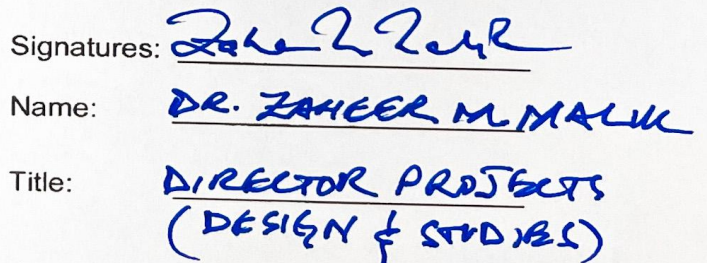 Signatures:
Name: DR. ZAHEER M MALIK
Title: DIRECTOR PROJECTS
(DESIGN & STUDIES)